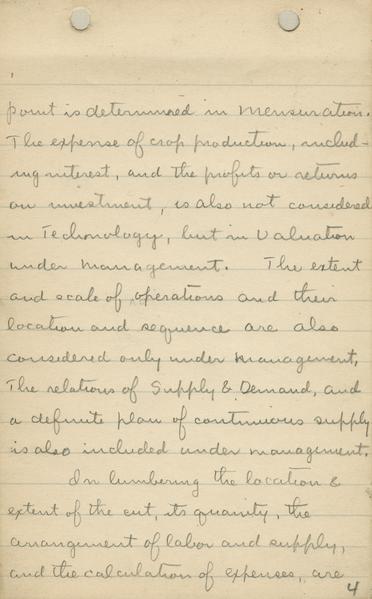 point is determined in Mensuration.
The expense of crop production, includ-
ing interest, and the profits or returns
on investment, is also not considered
in Technology, but in Valuation
under management. The extent
and scale of operations and their
location and sequence are also
considered only under management,
The relations of Supply & Demand, and
a definite plan of continuous supply
is also included under management.
In lumbering the location &
extent of the cut, its quanity, the
arrangement of labor and supply,
and the calculation of expenses, are
4